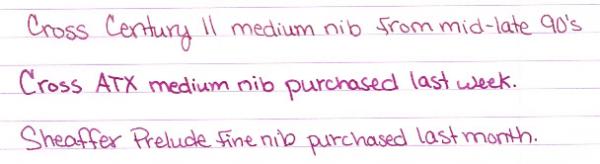 Cross Century II medium nib from mid-late 90's
Cross ATX medium nib purchased last week.
Sheaffer Prelude fine nib purchased last month.